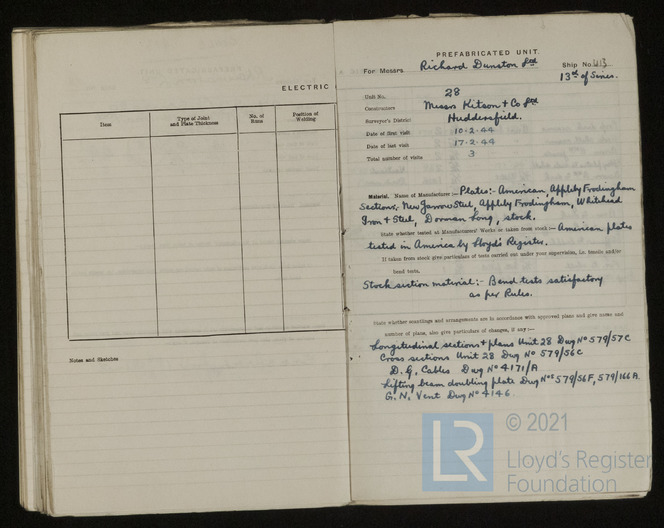 ELECTRIC
Item
Type of Joint
and Plate Thickness
No. of
Runs
Position of
Welding
Notes and Sketches
PREFABRICATED UNIT.
For Messrs Richard Dunston Ltd Ship No. 413
13th of Series.
Unit No. 28
Constructors Messrs Kitson & Co Ltd
Surveyor's District Huddersfield.
Date of first visit 10-2-44
Date of last visit 17-2-44
Total number of visits 3
Material. Name of Manufacturer :— Plates:- American, Appleby Frodingham
Sections:- New Jarrow Steel, Appleby Frodingham, Whitehead
Iron & Steel, Dorman Long, stock.
State whether tested at Manufacturers' Works or taken from stock :— American plates
tested in America by Lloyd's Register.
If taken from stock give particulars of tests carried out under your supervision, i.e. tensile and/or
bend tests.
Stock section material:- Bend tests satisfactory
as per Rules.
State whether scantlings and arrangements are in accordance with approved plans and give name and
number of plans, also give particulars of changes, if any :—
Longitudinal sections & plans Unit 28 Dwg No 579/57C
Cross sections Unit 28 Dwg No 579/56C
D.G. Cables Dwg No 4171/A
Lifting beam doubling plate Dwg Nos 579/56F, 579/166A
G.N. Vent Dwg No 4146.
LR
© 2021
Lloyd's Register
Foundation